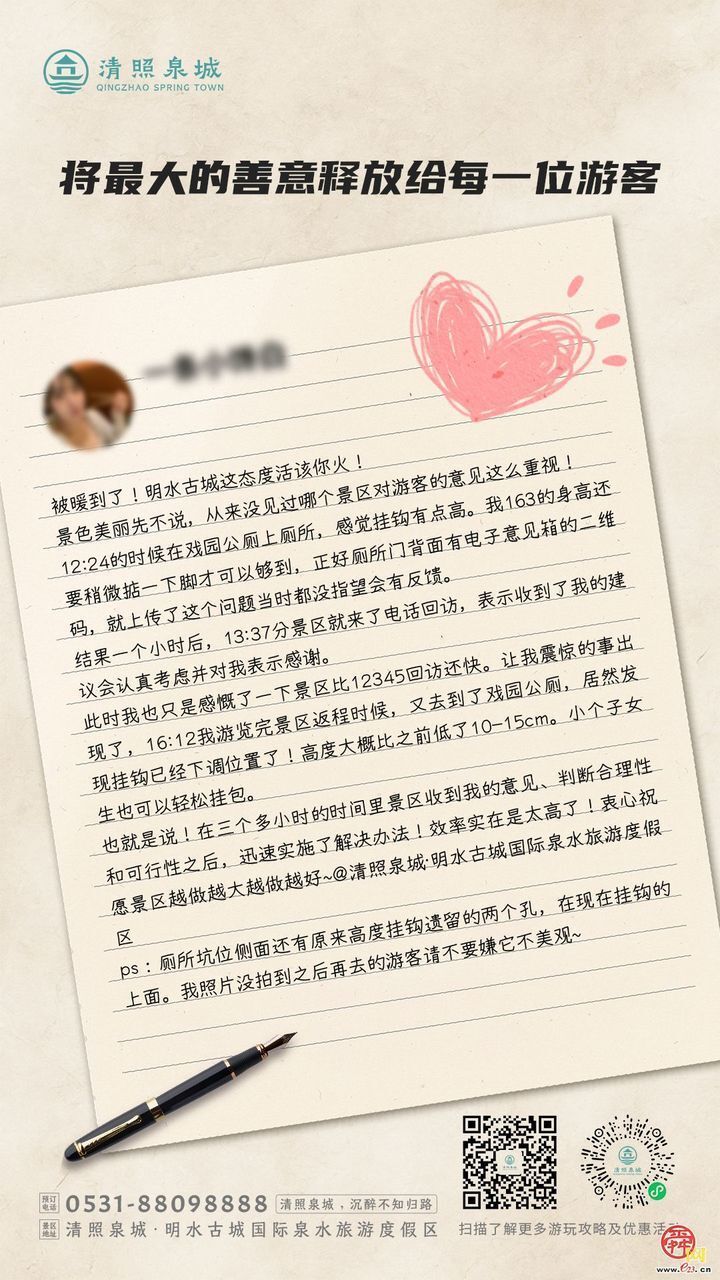 清照泉城
QINGZHAO SPRING TOWN
将最大的善意释放给每一位游客
被暖到了！明水古城这态度活该你火！
景色美丽先不说，从来没见过哪个景区对游客的意见这么重视！
12:24的时候在戏园公厕上厕所，感觉挂钩有点高。我163的身高还
要稍微掂一下脚才可以够到，正好厕所门背面有电子意见箱的二维
码，就上传了这个问题当时都没指望会有反馈。
结果一个小时后，13:37分景区就来了电话回访，表示收到了我的建
议会认真考虑并对我表示感谢。
此时我也只是感慨了一下景区比12345回访还快。让我震惊的事出
现了，16:12我游览完景区返程时候，又去到了戏园公厕，居然发
现挂钩已经下调位置了！高度大概比之前低了10-15cm。小个子女
生也可以轻松挂包。
也就是说！在三个多小时的时间里景区收到我的意见、判断合理性
和可行性之后，迅速实施了解决办法！效率实在是太高了！衷心祝
愿景区越做越大越做越好~@清照泉城·明水古城国际泉水旅游度假
区
ps：厕所坑位侧面还有原来高度挂钩遗留的两个孔，在现在挂钩的
上面。我照片没拍到之后再去的游客请不要嫌它不美观~
清照泉城
预订电话 0531-88098888 清照泉城，沉醉不知归路
景区地址 清照泉城·明水古城国际泉水旅游度假区
扫描了解更多游玩攻略及优惠活
舜网
www.e23.cn